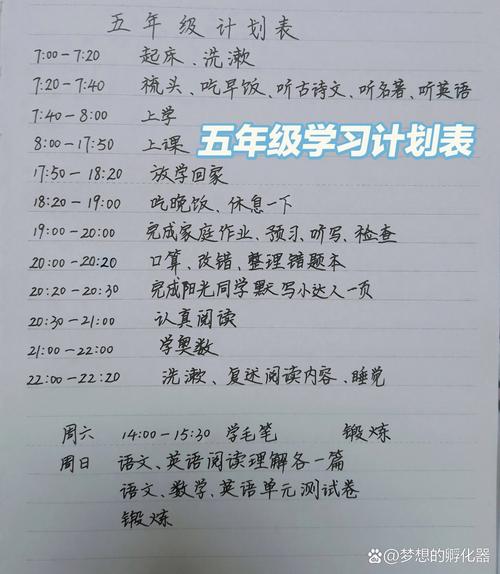 五年级计划表
7:00-7:20 起床、洗漱
7:20-7:40 梳头、吃早饭、听古诗文、听名著、听英语
7:40-8:00 上学
8:00-17:50 上课
五年级学习计划表
17:50-18:20 放学回家
18:20-19:00 吃晚饭、休息一下
19:00-20:00 完成家庭作业、预习、听写、检查
20:00-20:20 口算、改错、整理错题本
20:20-20:30 完成阳光同学默写小达人一页
20:30-21:00 认真阅读
21:00-22:00 学奥数
22:00-22:20 洗漱、复述阅读内容、睡觉
周六 14:00-15:30 学毛笔 锻炼
周日 语文、英语阅读理解各一篇
语文、数学、英语单元测试卷
锻炼
梦想的孵化器